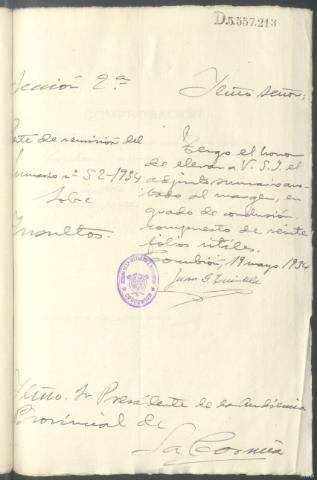 D.5.557.213
Sección 2.ª
Iltmo Señor:
Parte de remisión del
sumario nº 52-1934
sobre
Insultos.
Tengo el honor
de elevar a V. S. I. el
adjunto sumario ano-
tado al margen, en
grado de conclusión,
compuesto de veinte
folios útiles.
Corcubión, 19 mayo 1934
Juan G
Iltmo. Sr. Presidente de la Audiencia
Provincial de
La Coruña